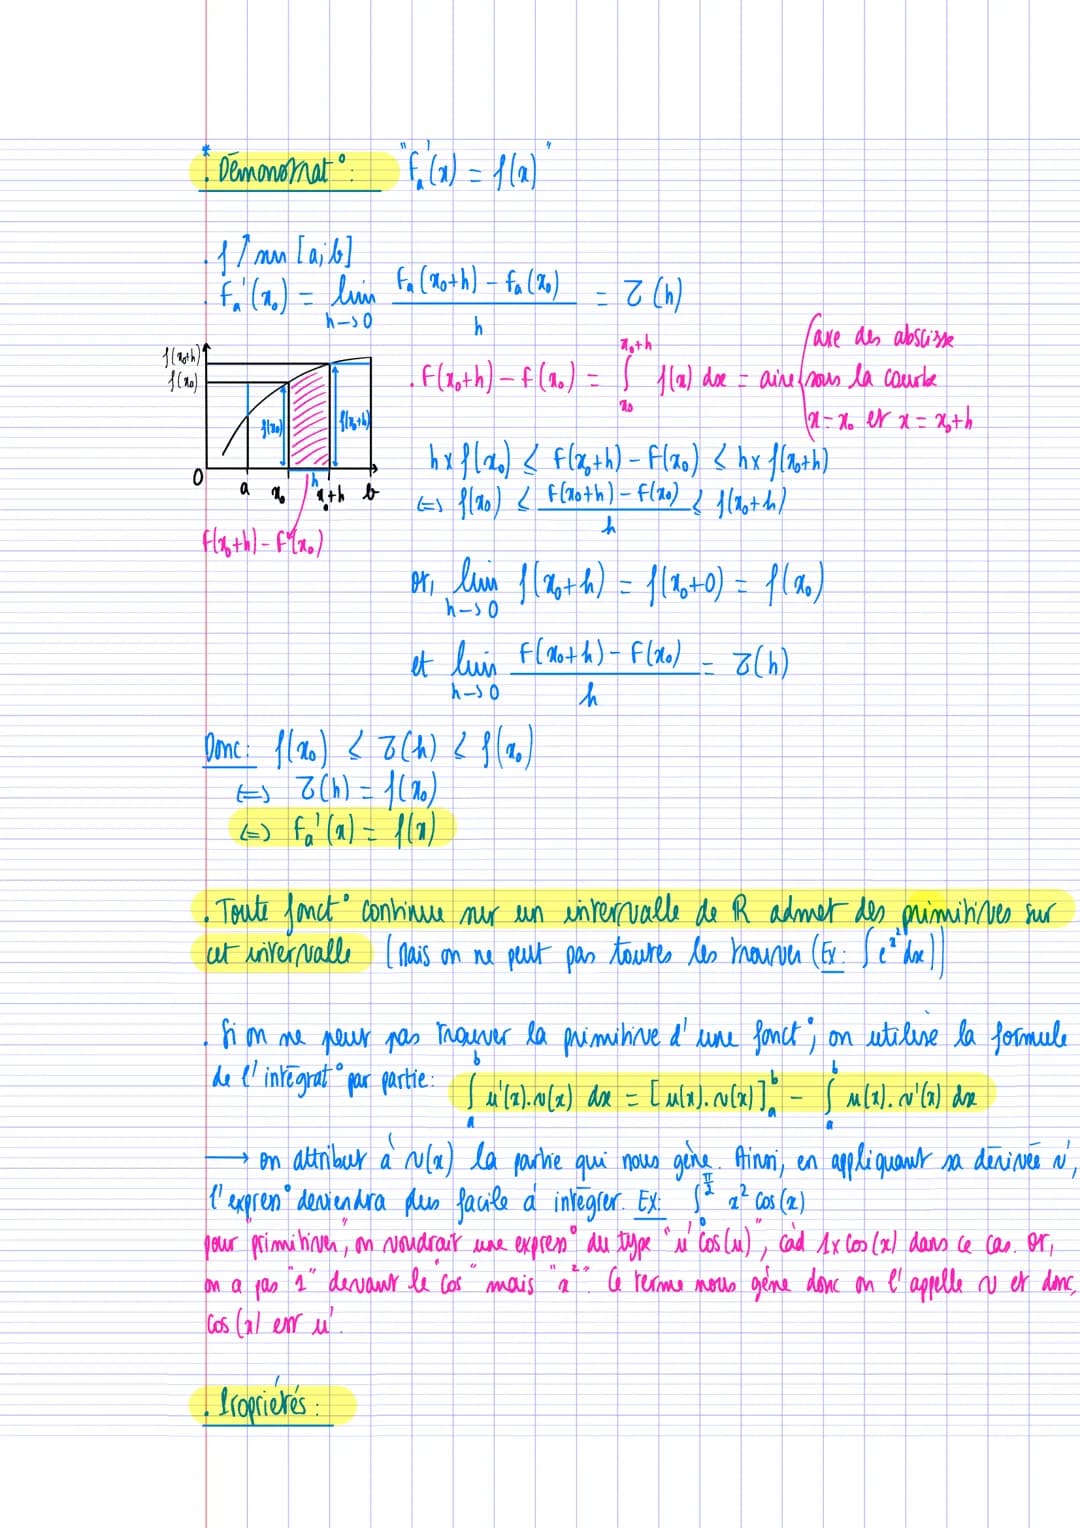 * . Démonstrat° : "Fₐ'(x) = f(x)"
. f ↗ sur [a;b]
. Fₐ'(x₀) = lim h→0 (Fₐ(x₀+h) - Fₐ(x₀))/h = τ(h)
f(x₀+h)
f(x₀)
f(x₀)
f(x₀+h)
h
0 a x₀ x₀+h b
F(x₀+h) - F(x₀)
. F(x₀+h) - F(x₀) = ∫ₓ₀ˣ⁰⁺ʰ f(x) dx = aire { axe des abscisse
sous la courbe
x = x₀ et x = x₀+h
h x f(x₀) ≤ F(x₀+h) - F(x₀) ≤ h x f(x₀+h)
<=> f(x₀) ≤ (F(x₀+h) - F(x₀))/h ≤ f(x₀+h)
or, lim h→0 f(x₀+h) = f(x₀+0) = f(x₀)
et lim h→0 (F(x₀+h) - F(x₀))/h = τ(h)
Donc : f(x₀) ≤ τ(h) ≤ f(x₀)
<=> τ(h) = f(x₀)
<=> Fₐ'(x) = f(x)
. Toute fonct° continue sur un intervalle de R admet des primitives sur
cet intervalle (Mais on ne peut pas toutes les trouver (Ex : ∫ e^x² dx))
. Si on ne peut pas trouver la primitive d'une fonct°, on utilise la formule
de l'intégrat° par partie : ∫ₐᵇ u'(x).v(x) dx = [u(x).v(x)]ₐᵇ - ∫ₐᵇ u(x).v'(x) dx
→ on attribut à v(x) la partie qui nous gêne. Ainsi, en appliquant sa dérivée v',
l'express° deviendra plus facile à intégrer. Ex : ∫₀^(π/2) x² cos(x)
pour "primitiver", on voudrait une express° du type "u' cos(u)", càd 1x cos(x) dans ce cas. Or,
on a pas "1" devant le "cos" mais "x²". Ce terme nous gêne donc on l'appelle v et donc,
cos(x) est u'.
. Propriétés :